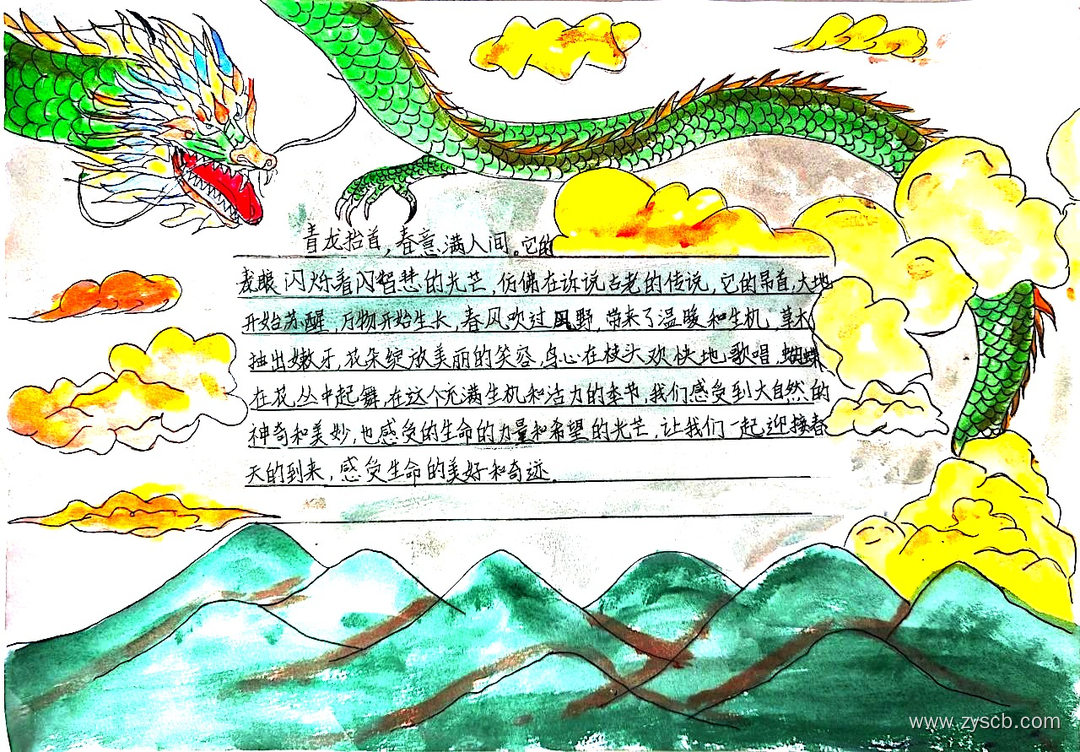 青龙抬首，春意满人间。它的
龙眼闪烁着闪智慧的光芒，仿佛在诉说古老的传说，它的昂首，大地
开始苏醒，万物开始生长，春风吹过田野，带来了温暖和生机，草木
抽出嫩牙，花朵绽放美丽的笑容，鸟心在枝头欢快地歌唱，蝴蝶
在花丛中起舞，在这个充满生机和活力的季节，我们感受到大自然的
神奇和美妙，也感受的生命的力量和希望的光芒，让我们一起迎接春
天的到来，感受生命的美好和奇迹。
www.zyscb.com